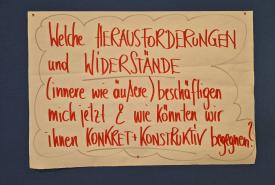 Welche HERAUSFORDERUNGEN
und WIDERSTÄNDE
(innere wie äußere) beschäftigen
mich jetzt & wie könnten wir
ihnen KONKRET+KONSTRUKTIV begegnen?